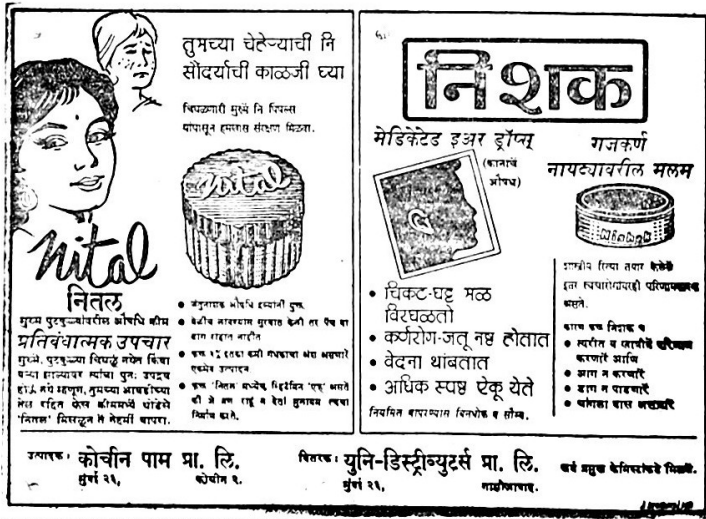 तुमच्या चेहेऱ्याची नि
सौंदर्याची काळजी घ्या
चिघळणारी मुरुमे नि पिंपल्स
यांपासून हमखास संरक्षण मिळवा.
nital
nital
नितल
मुरुमे पुटकुळ्यांवरील औषधि क्रीम
प्रतिबंधात्मक उपचार
मुरुमे, पुटकुळ्या चिघळू नयेत किंवा
बऱ्या झाल्यावर त्यांचा पुनः उपद्रव
होऊ नये म्हणून, तुमच्या आवडीच्या
तेल रहित फेस क्रीममध्ये थोडेसे
'नितल' मिसळून ते नेहमी वापरा.
जंतुनाशक औषधि द्रव्यांनी युक्त.
वेळीच वापरण्यास सुरवात केली तर
डाग राहात नाहीत
फक्त कमी गंधकाचा अंश असणारे
एकमेव उत्पादन
फक्त 'नितल' मध्येच असते
निर्माण करते.
निशक
मेडिकेटेड इअर ड्रॉप्स्
(कानाचे
औषध)
चिकट-घट्ट मळ
विरघळतो
कर्णरोग-जंतू नष्ट होतात
वेदना थांबतात
अधिक स्पष्ट ऐकू येते
नियमित वापरण्यास बिनधोक व सौम्य.
गजकर्ण
नायट्यावरील मलम
शास्त्रीय रित्या तयार केलेले
इतर त्वचारोगांवरही परिणामकारक
असते.
त्वरीत व खात्रीचे परिणाम
करणारे आणि
आग न करणारे
डाग न पाडणारे
चांगला वास असणारे
उत्पादक: कोचीन पाम प्रा. लि.
मुंबई २६, कोचीन १.
वितरक: युनि-डिस्ट्रीब्युटर्स प्रा. लि.
मुंबई २६, गाझीआबाद.
सर्व प्रमुख केमिस्टांकडे मिळते.